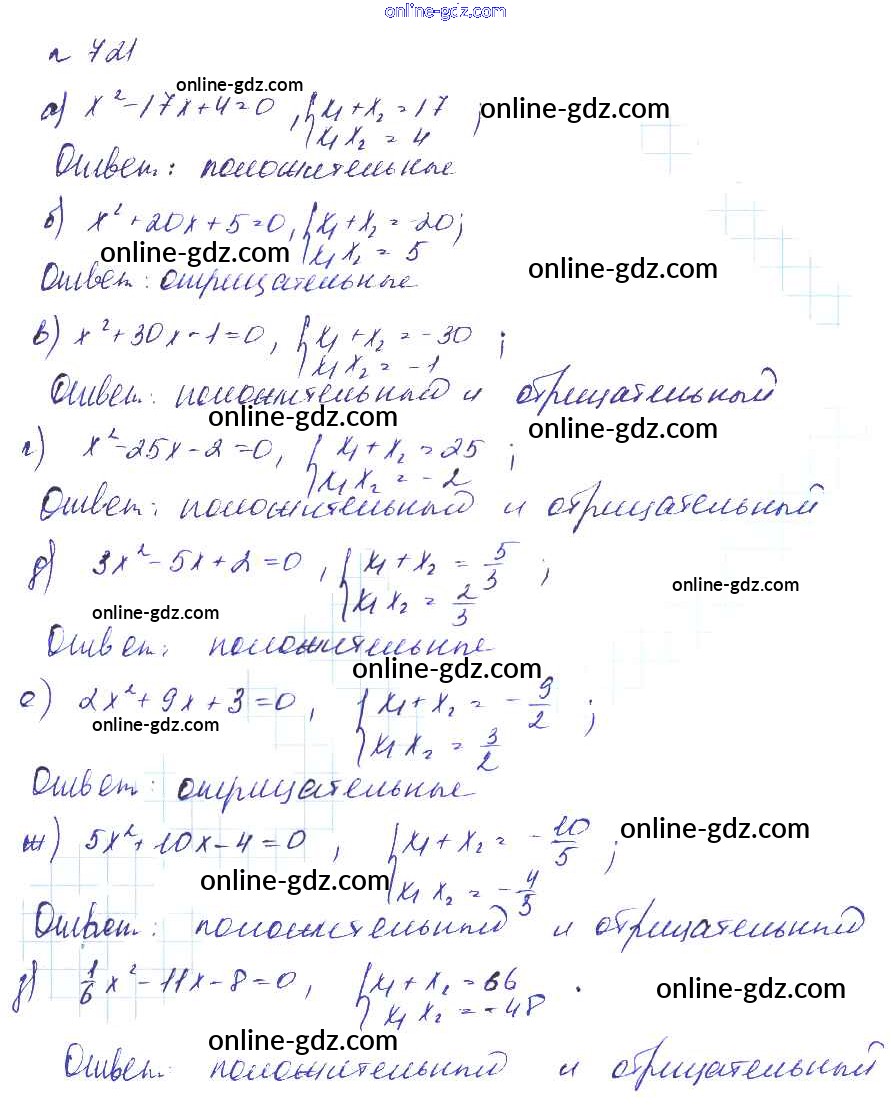 online-gdz.com
п 721
online-gdz.com
а) x² - 17x + 4 = 0 , { x₁ + x₂ = 17 ; online-gdz.com
x₁ x₂ = 4
Ответ: положительные
б) x² + 20x + 5 = 0, { x₁ + x₂ = -20;
online-gdz.com x₁ x₂ = 5
online-gdz.com
Ответ: отрицательные
в) x² + 30x - 1 = 0, { x₁ + x₂ = -30 ;
x₁ x₂ = -1
Ответ: положительный и отрицательный
online-gdz.com online-gdz.com
г) x² - 25x - 2 = 0, { x₁ + x₂ = 25 ;
x₁ x₂ = -2
Ответ: положительный и отрицательный
д) 3x² - 5x + 2 = 0 , { x₁ + x₂ = 5/3 ;
x₁ x₂ = 2/3
online-gdz.com
online-gdz.com
Ответ: положительные
online-gdz.com
е) 2x² + 9x + 3 = 0 , { x₁ + x₂ = -9/2 ;
online-gdz.com
x₁ x₂ = 3/2
Ответ: отрицательные
ж) 5x² + 10x - 4 = 0 , { x₁ + x₂ = -10/5 ; online-gdz.com
online-gdz.com x₁ x₂ = -4/5
Ответ: положительный и отрицательный
1/6 x² - 11x - 8 = 0 , { x₁ + x₂ = 66 .
x₁ x₂ = -48
online-gdz.com
online-gdz.com
Ответ: положительный и отрицательный